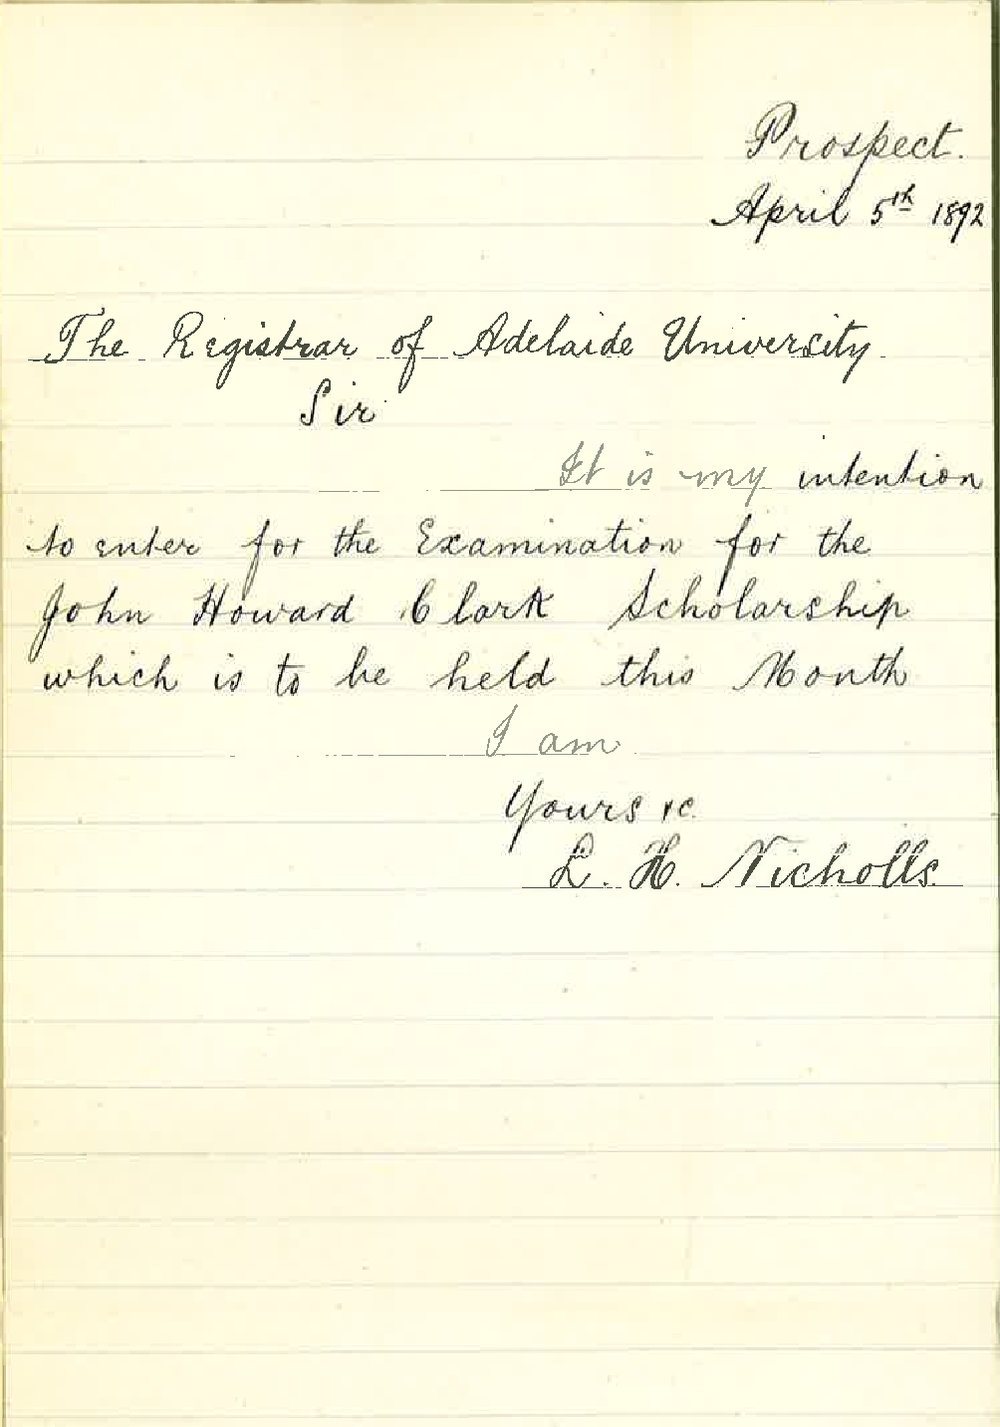 Prospect.
April 5th 1892
The Registrar of Adelaide University
Sir
It is my intention
to enter for the Examination for the
John Howard Clark Scholarship
which is to be held this Month
I am
Yours &c.
L. H. Nicholls.